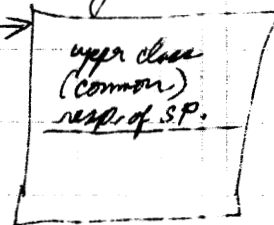 upper class
(common)
resp. of S.P.